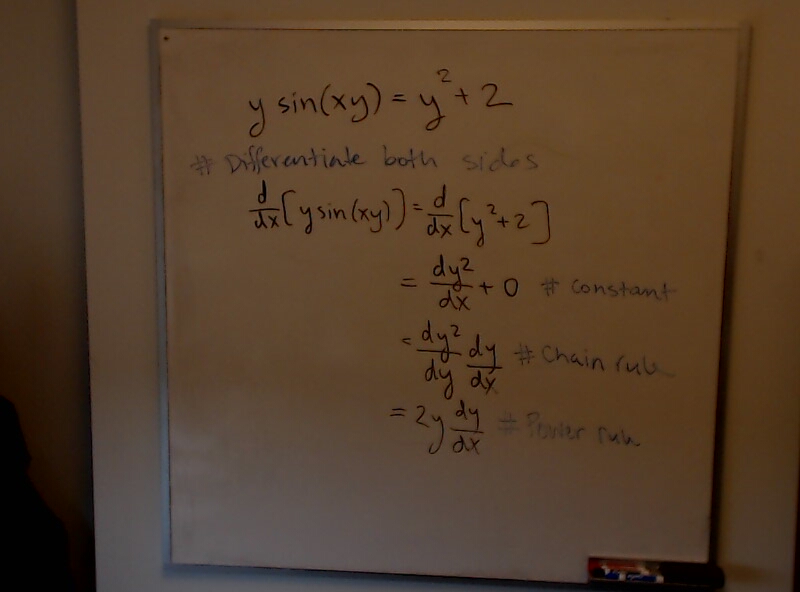 y sin(xy) = y² + 2
# Differentiate both sides
d/dx [y sin(xy)] = d/dx [y² + 2]
= dy²/dx + 0 # Constant
= dy²/dy dy/dx # Chain rule
= 2y dy/dx # Power rule